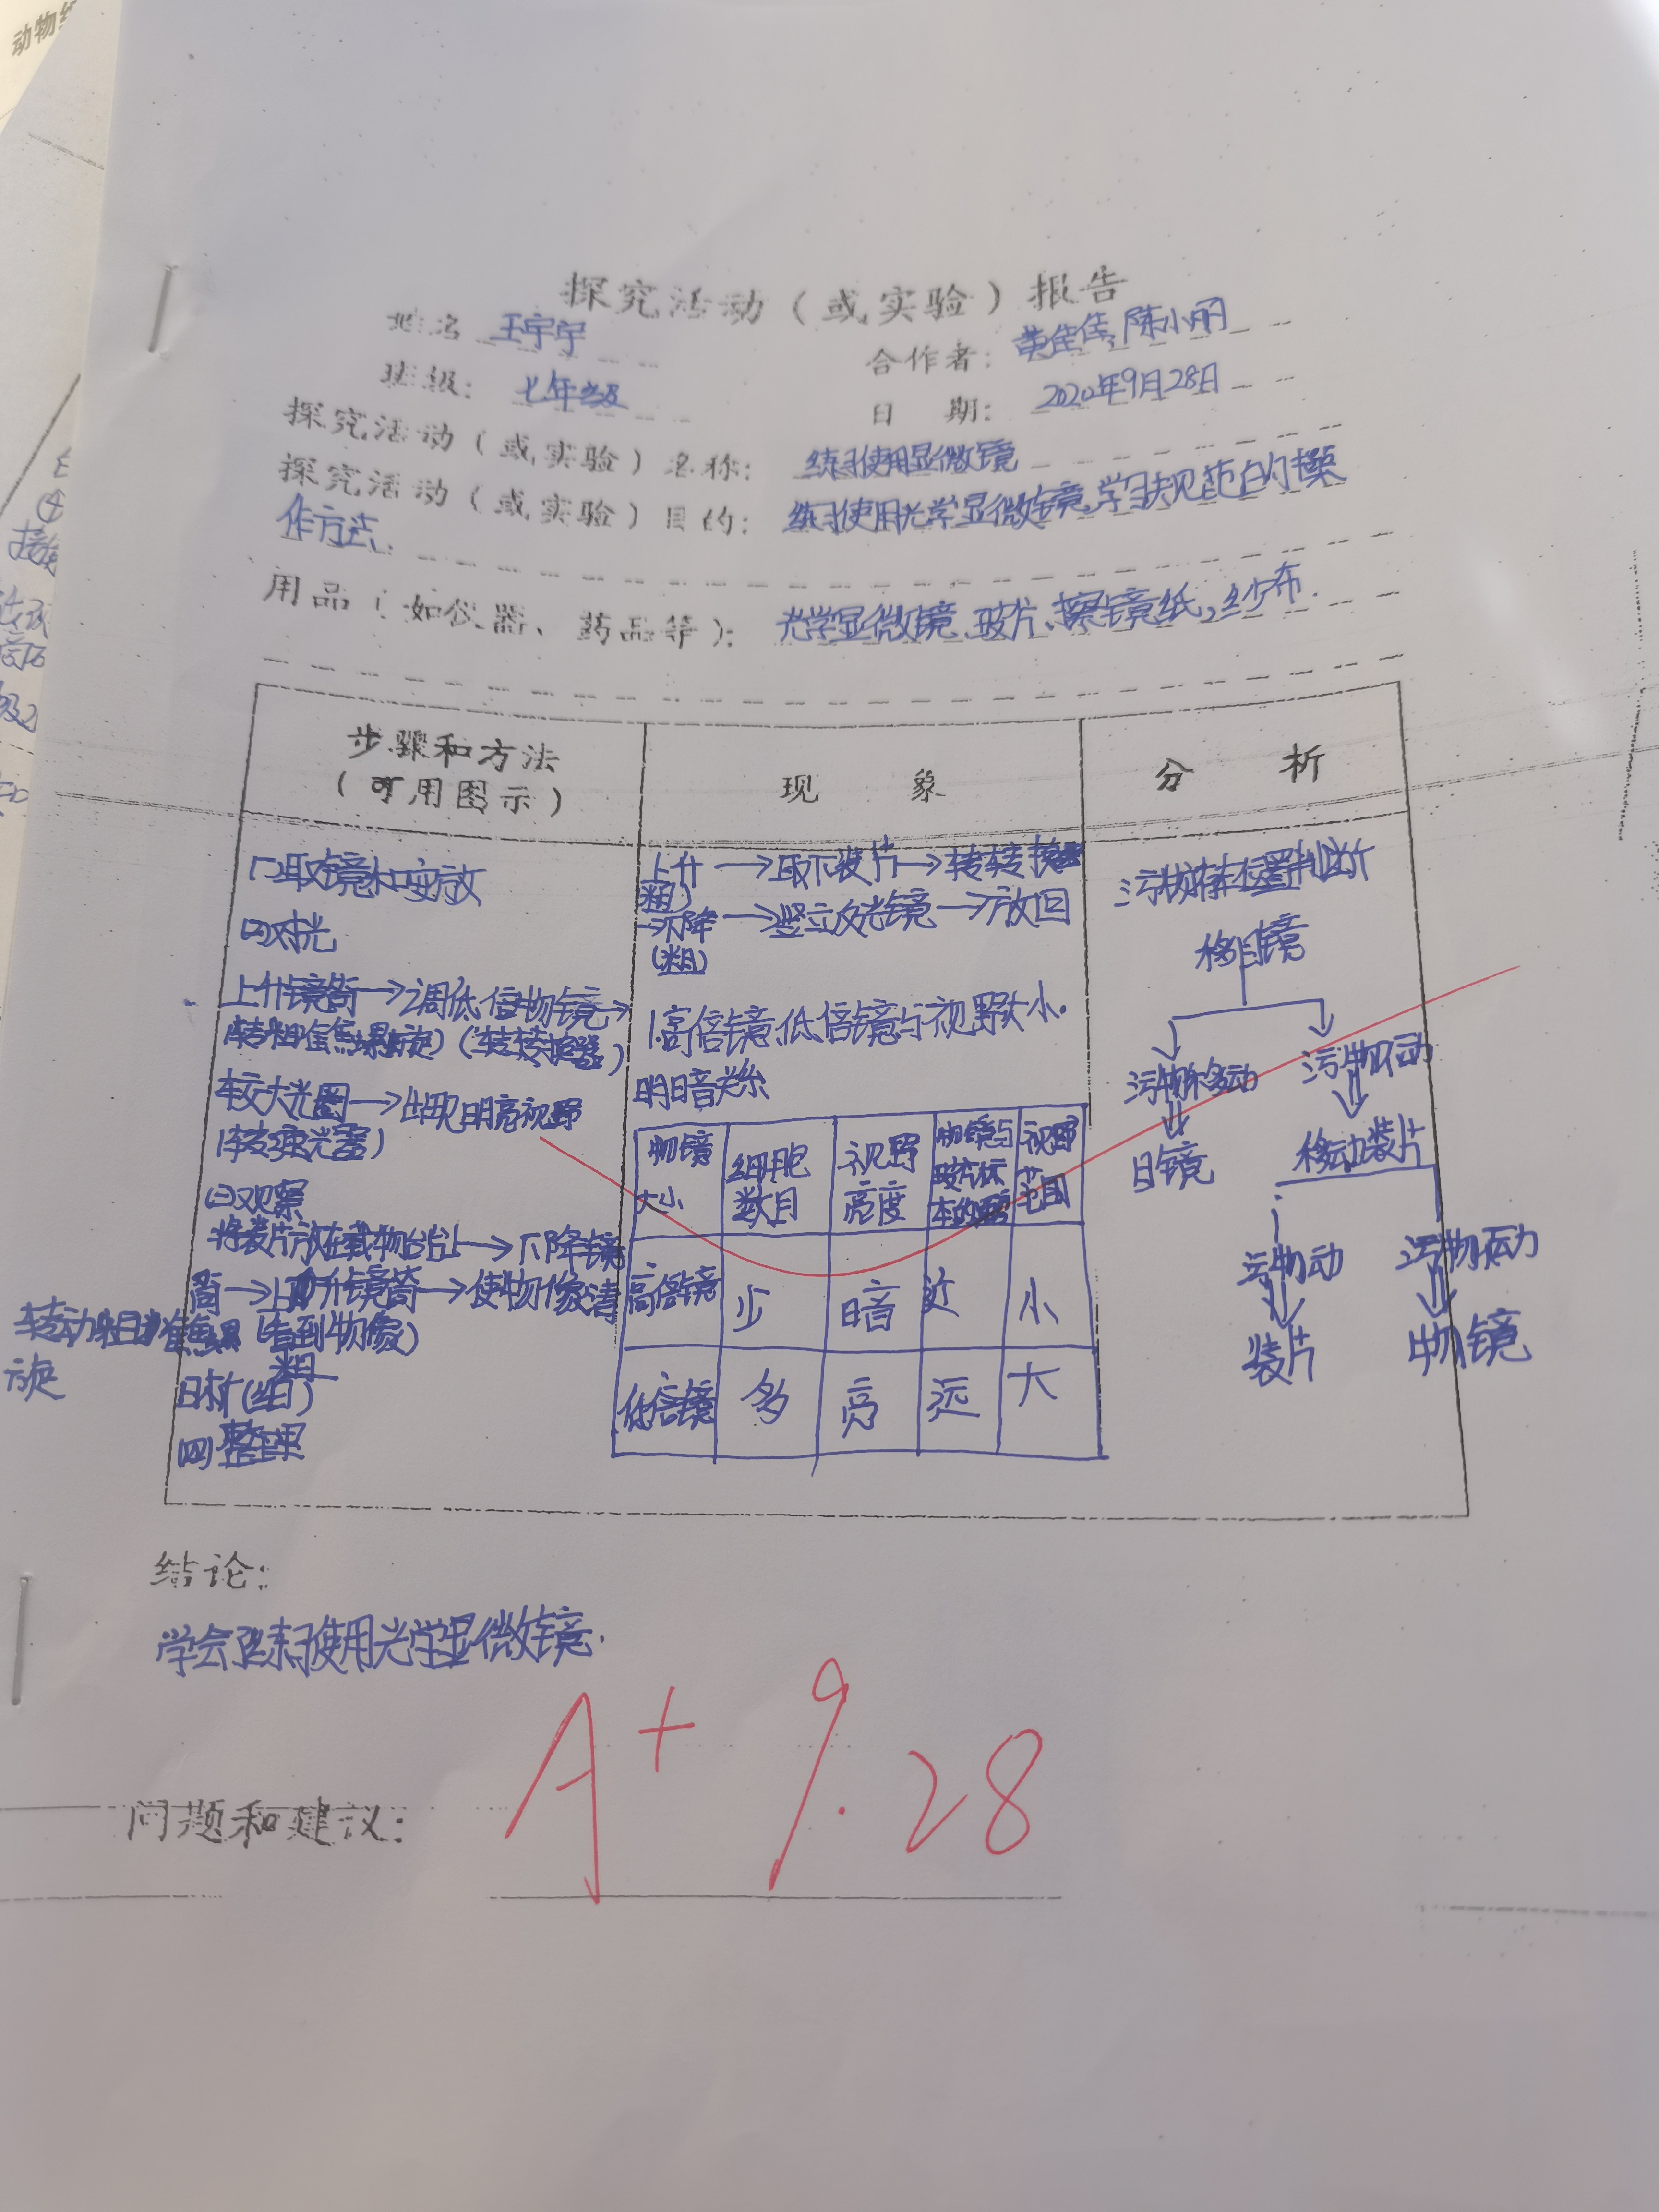 动物
探究活动（或实验）报告
姓名 王宇宇
合作者：黄佳佳、陈小丽
班级：七年级
日 期：2020年9月28日
探究活动（或实验）名称：练习使用显微镜
探究活动（或实验）目的：练习使用光学显微镜，学习规范的操
作方法.
用品（如仪器、药品等）：光学显微镜、玻片、擦镜纸，纱布.
步骤和方法
（可用图示）
现 象
分 析
(一)取镜和安放
(二)对光
上升镜筒→调低倍物镜→
(转粗准焦螺旋)(转转换器)
较大光圈→出现明亮视野
(转遮光器)
(三)观察
将装片放在载物台上→下降镜
筒→上升镜筒→使物像清
转动粗准焦螺 (看到物像)
旋 粗
晰(细)
(四)整理
上升→取下装片→转转换
(粗)
→下降→竖立反光镜→放回
(粗)
1.高倍镜、低倍镜与视野大小.
明暗关系
物镜大小 细胞数目 视野亮度 物镜与玻片标本的距离 视野范围
高倍镜 少 暗 近 小
低倍镜 多 亮 远 大
污物存在位置判断
移目镜
污物移动 污物不动
目镜 移动装片
污物动 污物不动
装片 物镜
结论：
学会了练习使用光学显微镜.
A+ 9.28
问题和建议：